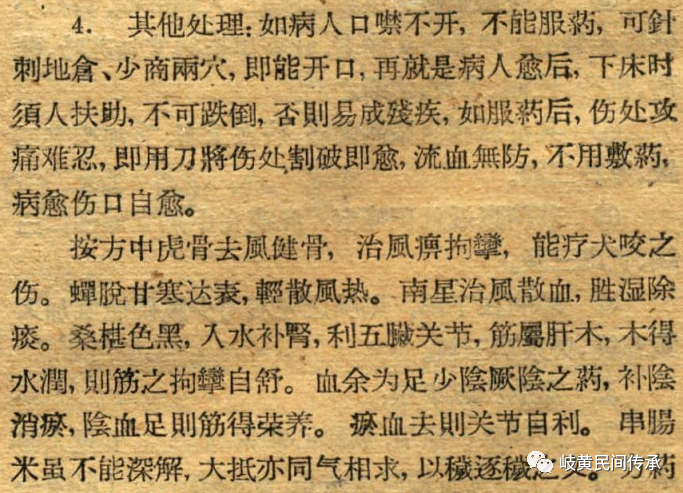 4. 其他处理：如病人口噤不开，不能服葯，可針
刺地倉、少商兩穴，即能开口，再就是病人愈后，下床时
須人扶助，不可跌倒，否則易成殘疾，如服葯后，伤处攻
痛难忍，即用刀將伤处割破即愈，流血無防，不用敷葯，
病愈伤口自愈。
按方中虎骨去風健骨，治風痹拘攣，能疗犬咬之
伤。蟬脫甘寒达表，輕散風热。南星治風散血，胜湿除
痰。桑椹色黑，入水补腎，利五臟关节，筋屬肝木，木得
水潤，則筋之拘攣自舒。血余为足少陰厥陰之葯，补陰
消瘀，陰血足則筋得荣养。瘀血去則关节自利。串腸
米虽不能深解，大抵亦同气相求，以穢逐穢之。方葯
岐黄民间传承